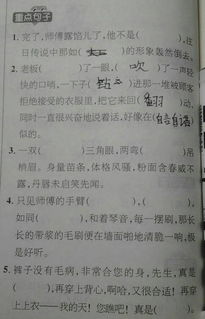 重点句子
1. 完了,师傅露馅儿了,他不是(      ),往
日传说中那如( 天二 )的形象轰然倒去。
2. 老板(      )了一眼,( 吹 )了一声轻
快的口哨,一下子( 钻 )进那一堆被顾客
拒绝接受的衣服里,把它来回( 翻 )动,
同时一直很兴奋地说着话,好像在(自言自语)
3. 一双(      )三角眼,两弯(      )吊
梢眉。身量苗条,体格风骚,粉面含春威不
露,丹唇未启笑先闻。
4. 只见师傅的手臂(      ),(      ),
如同(      ),和着琴音,每一摆刷,那长
长的带浆的毛刷便在墙面啪地清脆一响,极
是好听。
5. 裤子没有毛病,非常合您的身,先生,真是
(      ),再穿上背心,啊哈,又很合适!再穿
上上衣——我的天!您瞧吧!真是(      )。